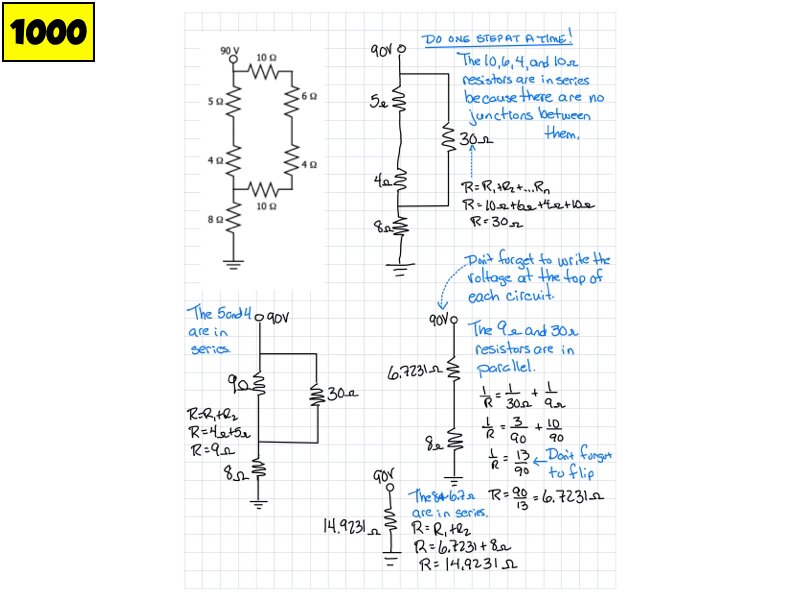 1000
90 V
10 Ω
5 Ω
6 Ω
4 Ω
4 Ω
10 Ω
8 Ω
DO ONE STEP AT A TIME!
90V
The 10,6,4, and 10Ω
resistors are in series
because there are no
junctions between
them.
5Ω
30Ω
4Ω
8Ω
R=R₁+R₂+...Rn
R=10Ω+6Ω+4Ω+10Ω
R=30Ω
Don't forget to write the
voltage at the top of
each circuit.
The 5 and 4
are in
series.
90V
9Ω
30Ω
R=R₁+R₂
R=4Ω+5Ω
R=9Ω
8Ω
90V
The 9Ω and 30Ω
resistors are in
parallel.
6.7231Ω
8Ω
1/R = 1/30Ω + 1/9Ω
1/R = 3/90 + 10/90
1/R = 13/90
Don't forget
to flip
R=90/13=6.7231Ω
90V
14.9231Ω
The 8+6.7Ω
are in series.
R=R₁+R₂
R=6.7231+8Ω
R=14.9231Ω